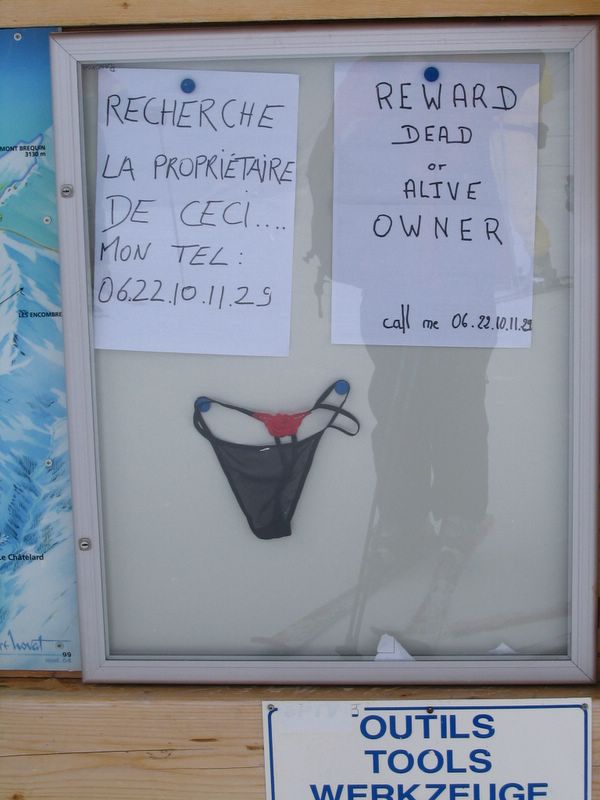 RECHERCHE
LA PROPRIÉTAIRE
DE CECI....
MON TEL :
06.22.10.11.29
REWARD
DEAD
or
ALIVE
OWNER
call me 06.22.10.11.29
MONT BREQUIN
3130 m
LES ENCOMBRE
Le Châtelard
99
OUTILS
TOOLS
WERKZEUGE